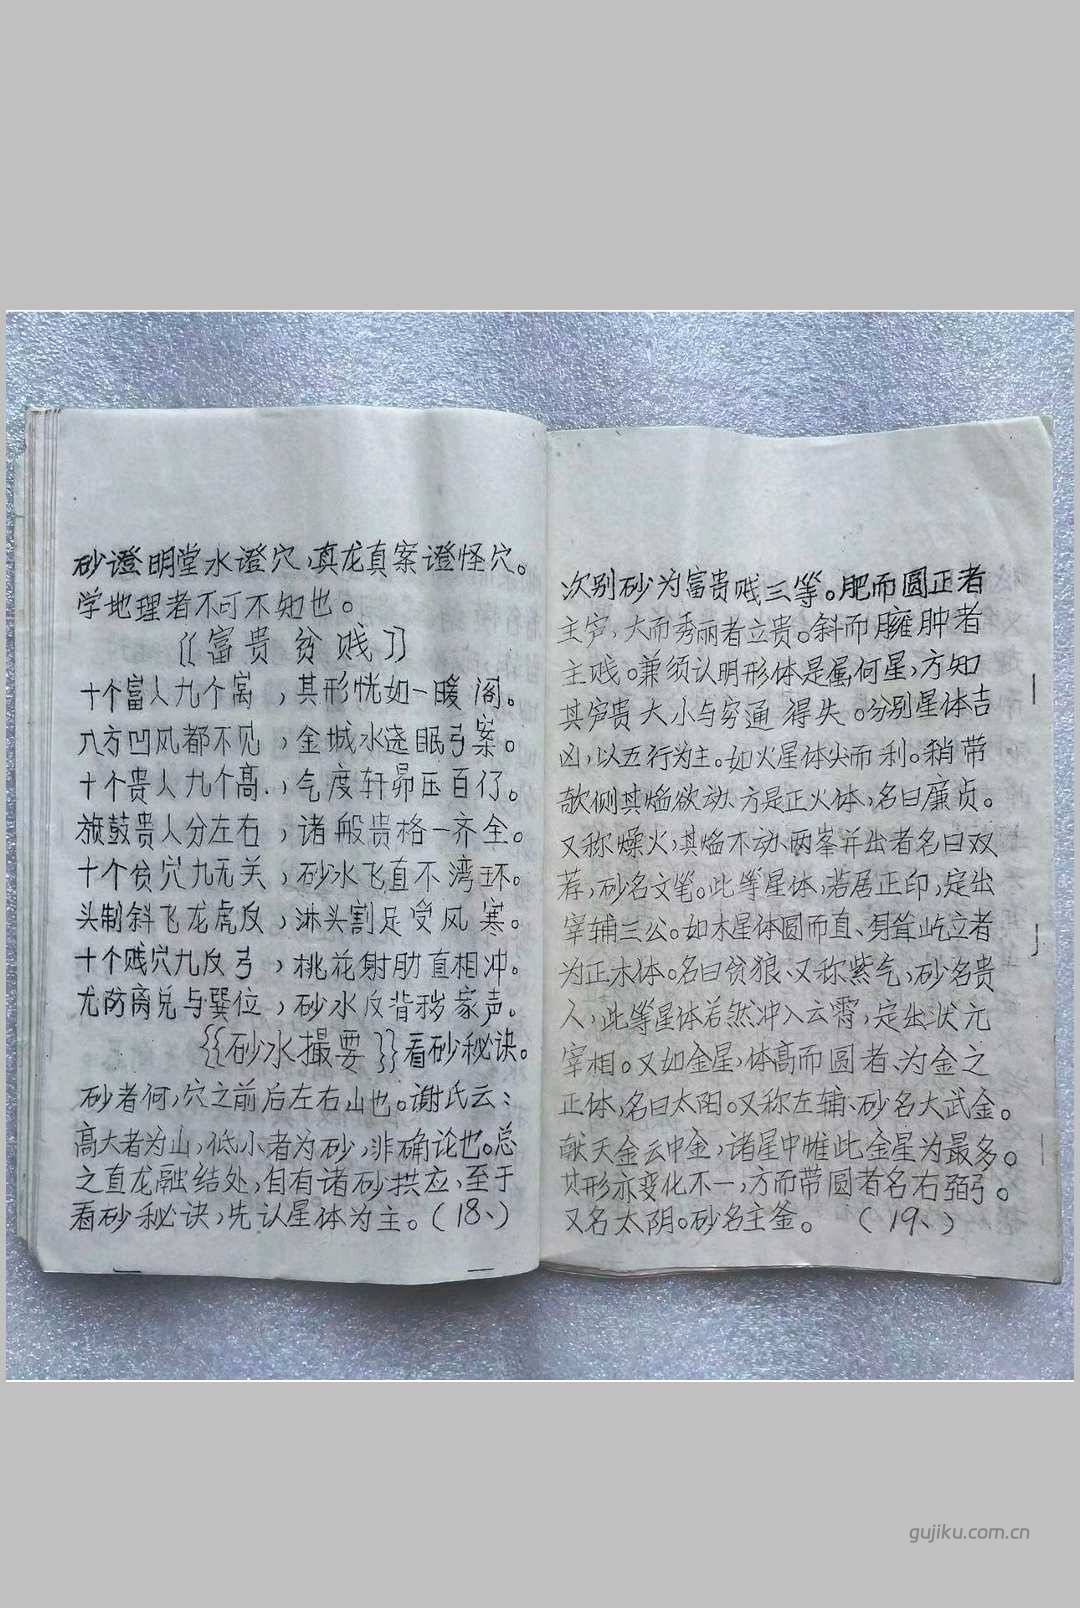 砂澄明堂水澄穴,真龙真案澄怪穴。
学地理者不可不知也。
〖富贵贫贱〗
十个富人九个寓,其形恍如一暖阁。
八方凹风都不见,金城水遶眠弓案。
十个贵人九个高,气度轩昴压百仔。
旗鼓贵人分左右,诸般贵格一齐全。
十个贫穴九无关,砂水飞直不湾环。
头制斜飞龙虎反,淋头割足受风寒。
十个贱穴九反弓,桃花射肋直相冲。
尤防离兑与巽位,砂水反背秽家声。
{{砂水撮要}}看砂秘诀。
砂者何,穴之前后左右山也。谢氏云:
高大者为山,低小者为砂,非确论也。总
之直龙融结处,自有诸砂拱应,至于
看砂秘诀,先认星体为主。(18、)
次别砂为富贵贱三等。肥而圆正者
主富,大而秀丽者立贵。斜而臃肿者
主贱。兼须认明形体是属何星,方知
其富贵大小与穷通得失。分别星体吉
凶,以五行为主。如火星体尖而利。稍带
欹侧其焰欲动、方是正火体,名曰廉贞。
又称燥火,其焰不动、两峯并出者名曰双
荐,砂名文笔。此等星体,若居正印,定出
宰辅三公。如木星体圆而直、身耸屹立者
为正木体。名曰贫狼、又称紫气,砂名贵
人,此等星体若然冲入云霄,定出状元
宰相。又如金星,体高而圆者、为金之
正体,名曰太阳。又称左辅、砂名大武金。
献天金云中金,诸星中惟此金星为最多。
其形亦变化不一,方而带圆者名右弼。
又名太阴。砂名主釜。(19、)
gujiku.com.cn